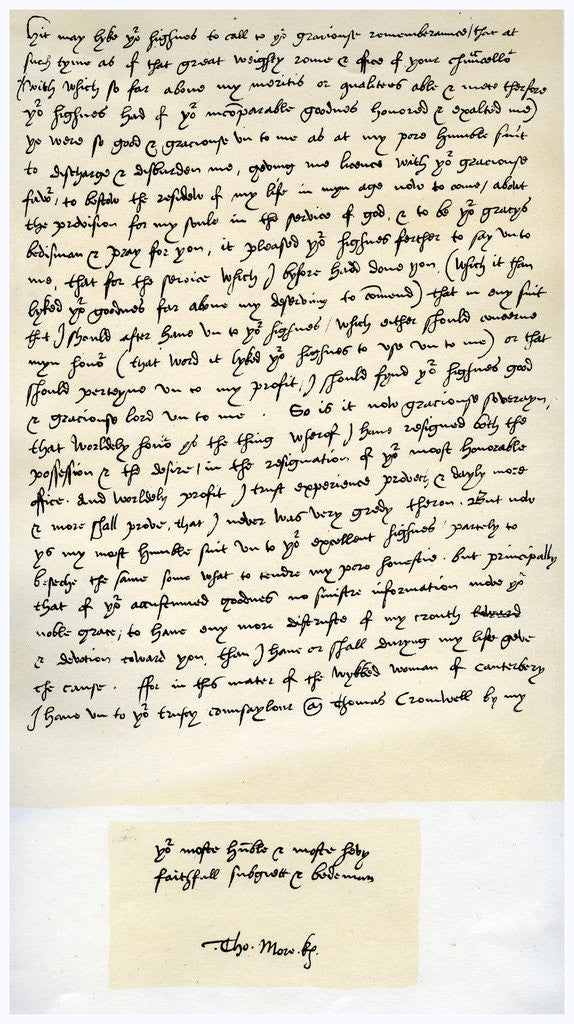 Hit may lyke yor highnes to call to yor graciouse remembraunce / that at
such tyme as of that great weighty rome & office of your chauncellor
(with which so far above my meritis or qualitees able & mete therfore
yor highnes had of yor incomparable goodnes honored & exalted me)
ye were so good & graciouse un to me as at my pore humble suit
to discharge & disburden me, geving me licence with yor graciouse
favor, to bestow the residew of my life in myn age now to come / abowt
the provision for my soule in the service of god, & to be yor gracys
bedisman & pray for you, it pleased yor highnes ferther to say unto
me, that for the service which I byfore had done you (which it than
lyked yor goodnes far above my deserving to comend) that in eny suit
that I should after have un to yor highnes / which either should concerne
myn honor (that word it lyked yor highnes to use un to me) or that
should perteyne un to my profit / I should fynd yor highnes good
& graciouse lord un to me . So is it now graciouse soverayn,
that worldely honor ys the thing wherof I have resigned both the
possession & the desire / in the resignation of yor moost honorable
office. And worldely profit I trust experience proveth & dayly more
& more shall prove, that I never was very gredy theron. But now
ys my most humble suit un to yor excellent highnes / partely to
beseche the same some what to tendre my pore honestie. but principally
that of yor accustumed goodnes no sinistre information move yor
noble grace, to have eny more distruste of my trouth toward
& devotion toward you, than I have or shall duryng my life geve
the cause . ffor in this mater of the wykked woman of Canterbery
I have un to yor trusty counsaylour Thomas Cromwell by my
yor moste humble & moste hevy
faithfull subgiett & bedeman
.Tho. More.kg.